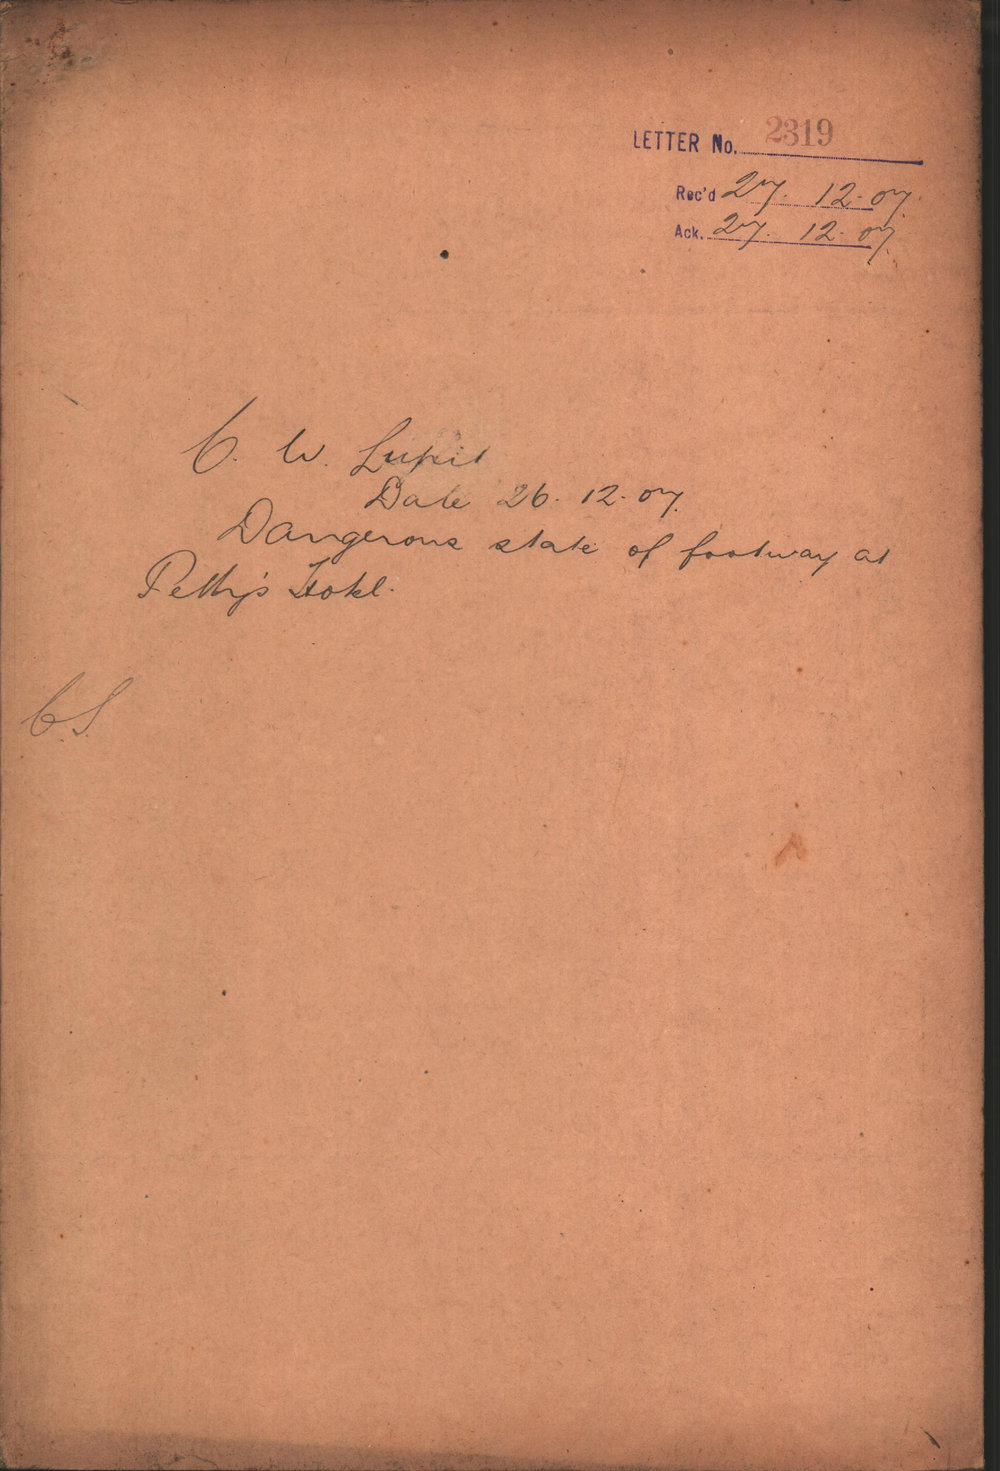 LETTER No. 2319
Rec'd 27. 12. 07.
Ack. 27. 12. 07.
C. W. Lupit
Date 26. 12. 07.
Dangerous state of footway at
Petty's Hotel.
C.S.